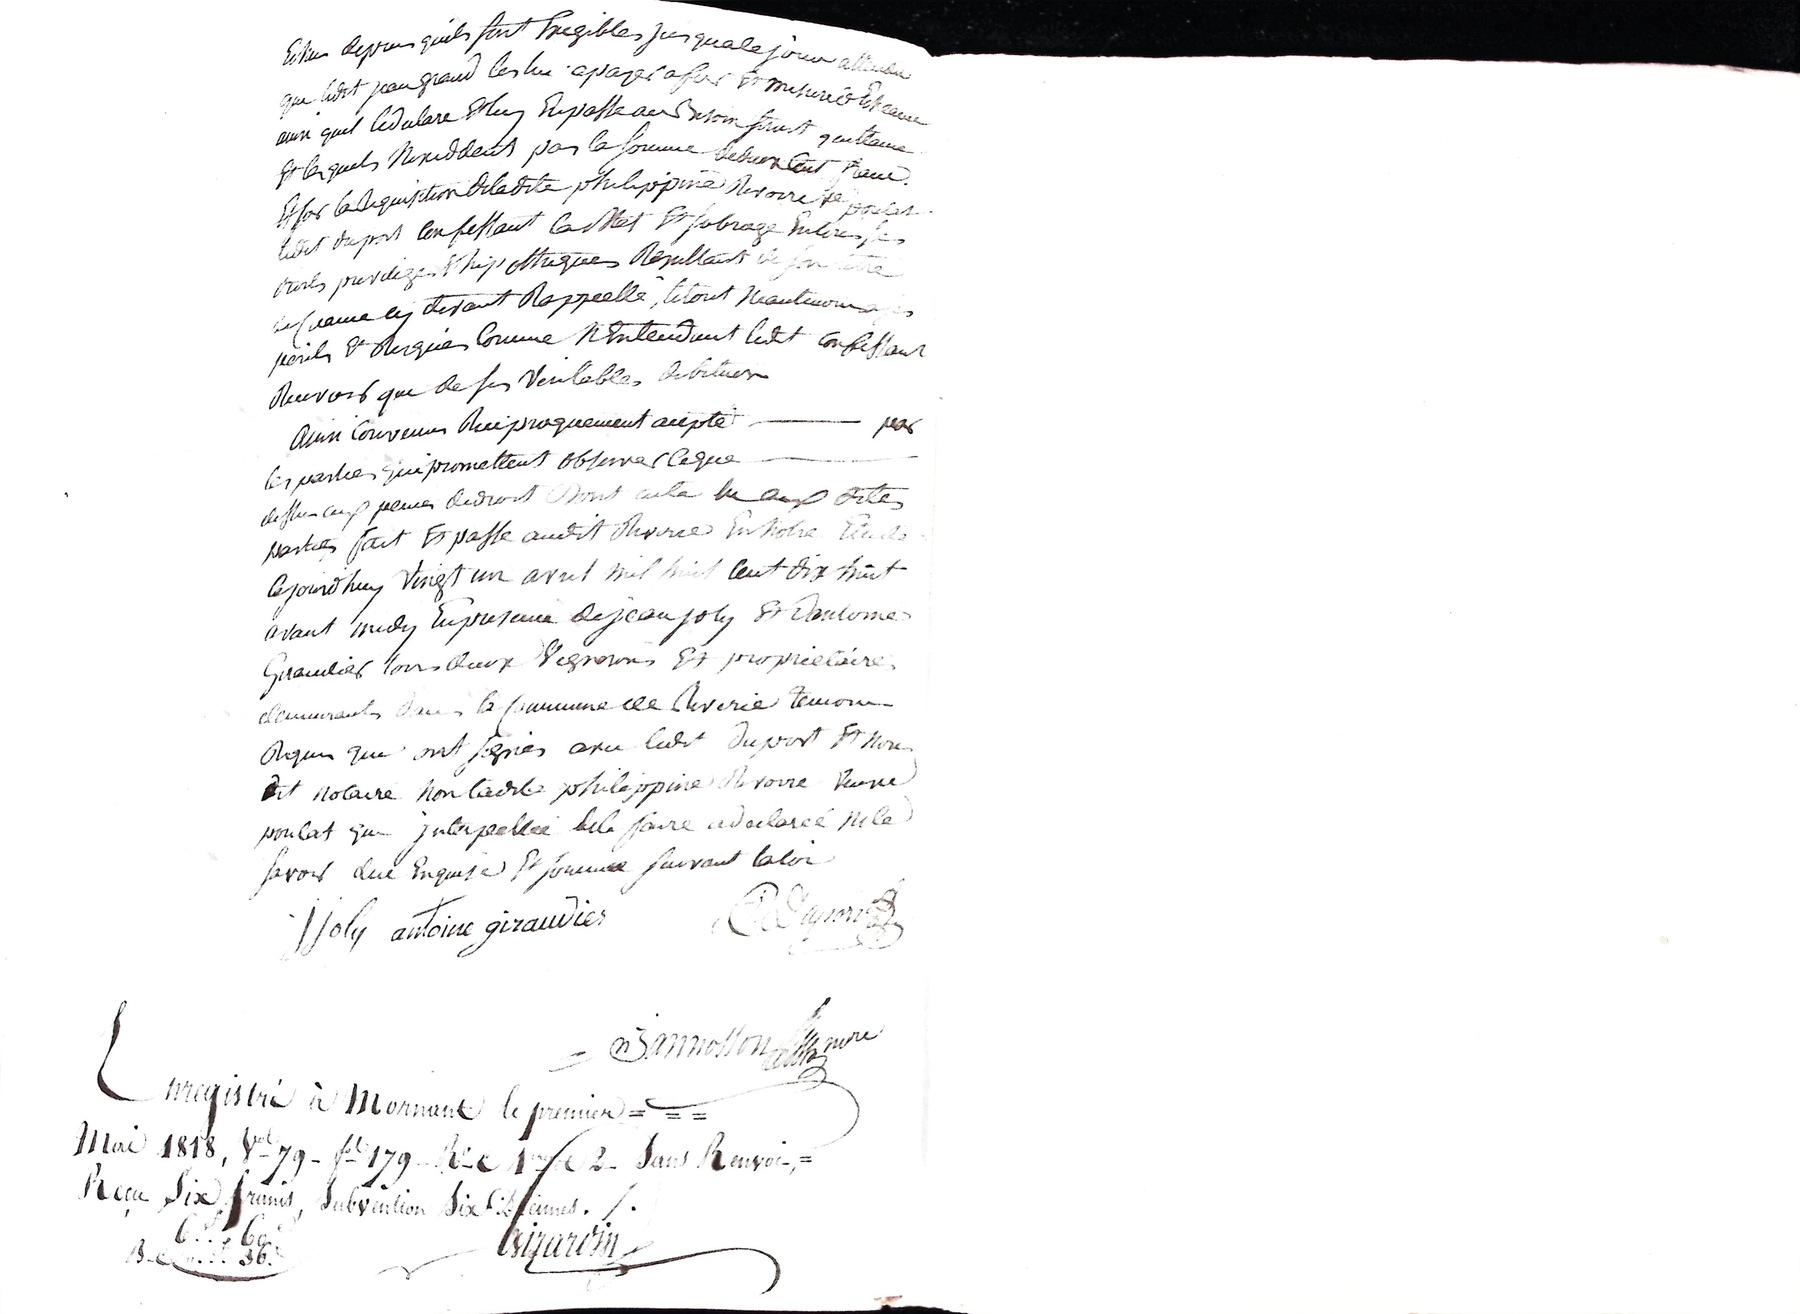 Echus depuis quils sont Exigibles jusqua ce jour attendu
que ledit jean grand les lui a payés a fur Et mesure d'Echeance
ainsi quil le declare Et luy En passe au Besoin quittance
Et lesquels N'exceddent pas la somme de deux Cent francs.
Et sur la Requisition de ladite philippine Revoire ve poulat
ledit duport Confessant la Met Et subroge En tous ses
droits privileges Et hipotheques Resultants de son titre
de Creance cy devant Rappellé, le tout neantmoins a ses
perils Et Risques Comme N'Entendant ledit Confessant
Recevoir que de ses Veritables debiteurs
Ainsi Convenu Reciproquement accepté par
les parties qui promettent observer ce que
dessus aux peines de droit Dont acte lu aux dites
parties fait Et passé audit Riverie En notre Etude
Cejourd'huy Vingt un avril mil huit Cent dix huit
avant midy En presence de jean joly Et d'antoine
Giraudier tous deux Vignerons Et proprietaires
demeurants dans la Commune de Riverie temoins
Requis qui ont signés avec ledit duport Et Nous
dit notaire non ladite philippine Revoire veuve
poulat qui interpellée de le faire a declaré ne le
savoir de ce Enquise Et sommée suivant la loi
J Joly antoine giraudier Duport
Jannosson notaire
Enregistré à Mornant le premier = = =
Mai 1818, Vol 79 - fol 179 - Ro C 1re et 2 - Sans Renvoi, =
Reçu Six francs, Subvention Six Dixiemes. /.
6.f. 60.c
36.
Girardin